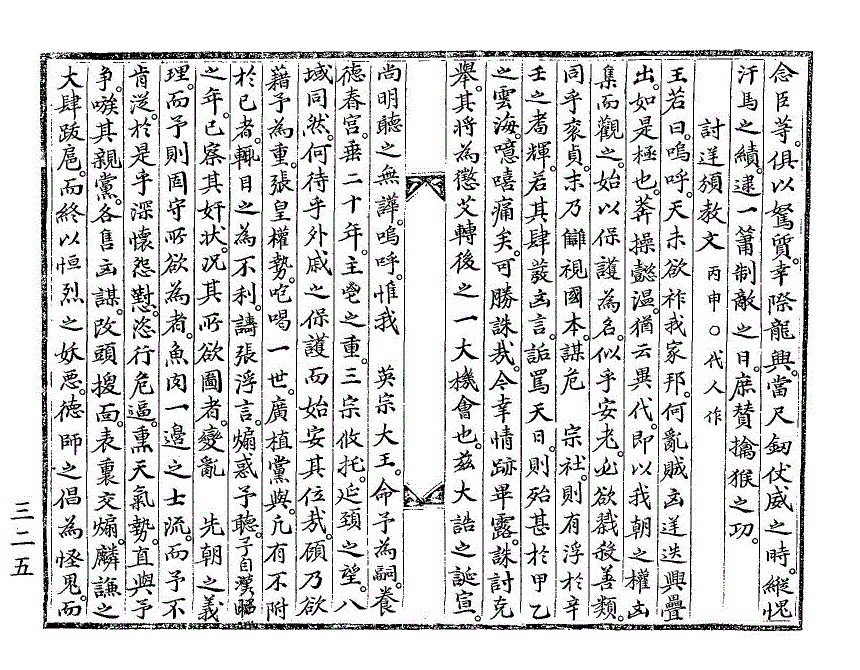 念臣等。俱以駑質。幸際龍興。當尺劒仗威之時。縱愧
汗馬之績。逮一箭制敵之日。庶贊擒猴之功。
討逆頒敎文 丙申○代人作
王若曰。嗚呼。天未欲祚我家邦。何亂賊凶逆迭興疊
出。如是極也。莾操懿溫。猶云異代。卽以我朝之權凶
集而觀之。始以保護爲名。似乎安老。必欲戮殺善類。
同乎衮貞。末乃讎視國本。謀危 宗社。則有浮於辛
壬之耈輝。若其肆發凶言。詬罵天日。則殆甚於甲乙
之雲海。噫嘻痛矣。可勝誅哉。今幸情跡畢露。誅討克
擧。其將爲懲艾轉後之一大機會也。玆大誥之誕宣。
尙明聽之無譁。嗚呼。惟我 英宗大王。命予爲嗣。養
德春宮。垂二十年。主鬯之重。三宗攸托。延頸之望。八
域同然。何待乎外戚之保護而始安其位哉。顧乃欲
藉予爲重。張皇權勢。咆喝一世。廣植黨與。凡有不附
於己者。輒目之爲不利。譸張浮言。煽惑予聽。予自
之年。已察其奸狀。况其所欲圖者。變亂 先朝之義
理。而予則固守所欲爲者。魚肉一邊之士流。而予不
肯從。於是乎深懷怨懟。恣行危逼。熏天氣勢。直與予
爭。嗾其親黨。各售凶謀。改頭換面。表裏交煽。麟謙之
大肆跋扈。而終以恒烈之妖惡。德師之倡爲怪鬼。而
三二五